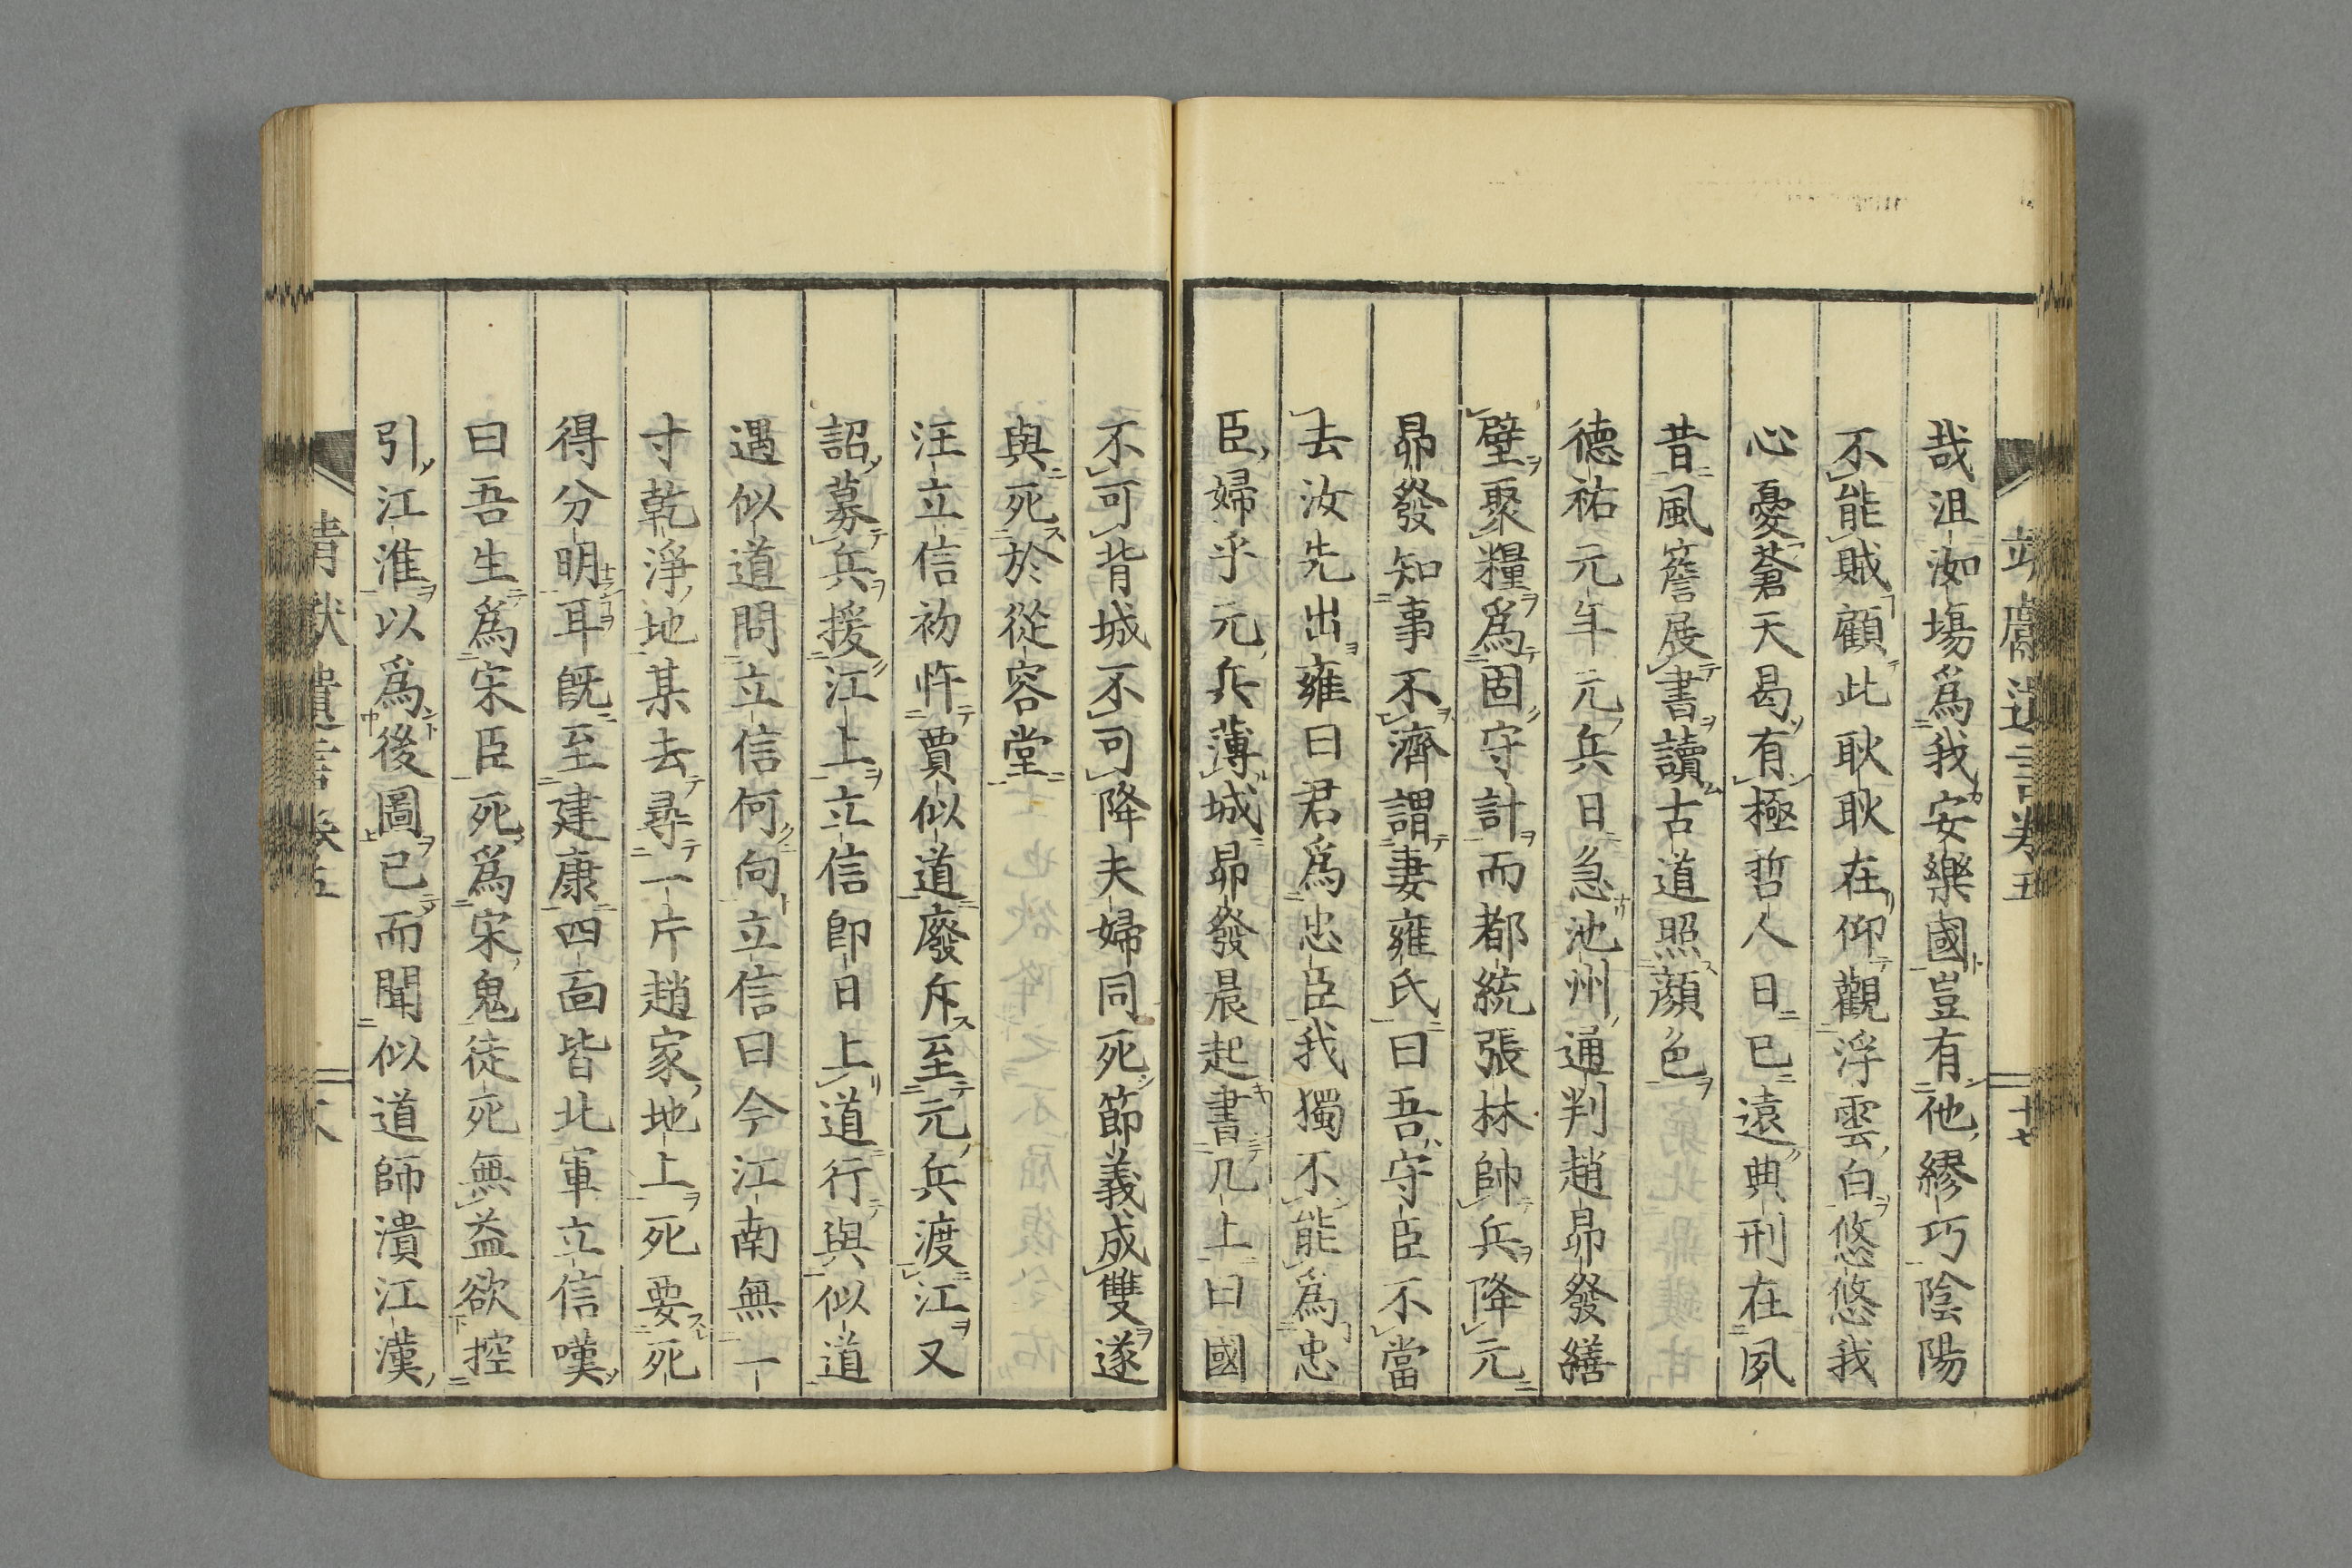 靖獻遺言卷五
十七
哉沮洳場爲我安樂國豈有他繆巧陰陽
不能賊顧此耿耿在仰觀浮雲白悠悠我
心憂蒼天曷有極哲人日已遠典刑在夙
昔風簷展書讀古道照顔色
德祐元年元兵日急池州通判趙昴發繕
壁聚糧爲固守計而都統張林帥兵降元
昴發知事不濟謂妻雍氏曰吾守臣不當
去汝先出雍曰君爲忠臣我獨不能爲忠
臣婦乎元兵薄城昴發晨起書几上曰國
不可背城不可降夫婦同死節義成雙遂
與死於從容堂
汪立信初忤賈似道廢斥至元兵渡江又
詔募兵援江上立信卽日上道行與似道
遇似道問立信何向立信曰今江南無一
寸乾淨地某去尋一片趙家地上死要死
得分明耳旣至建康四面皆北軍立信嘆
曰吾生爲宋臣死爲宋鬼徒死無益欲控
引江淮以爲後圖已而聞似道師潰江漢
靖獻遺言卷五